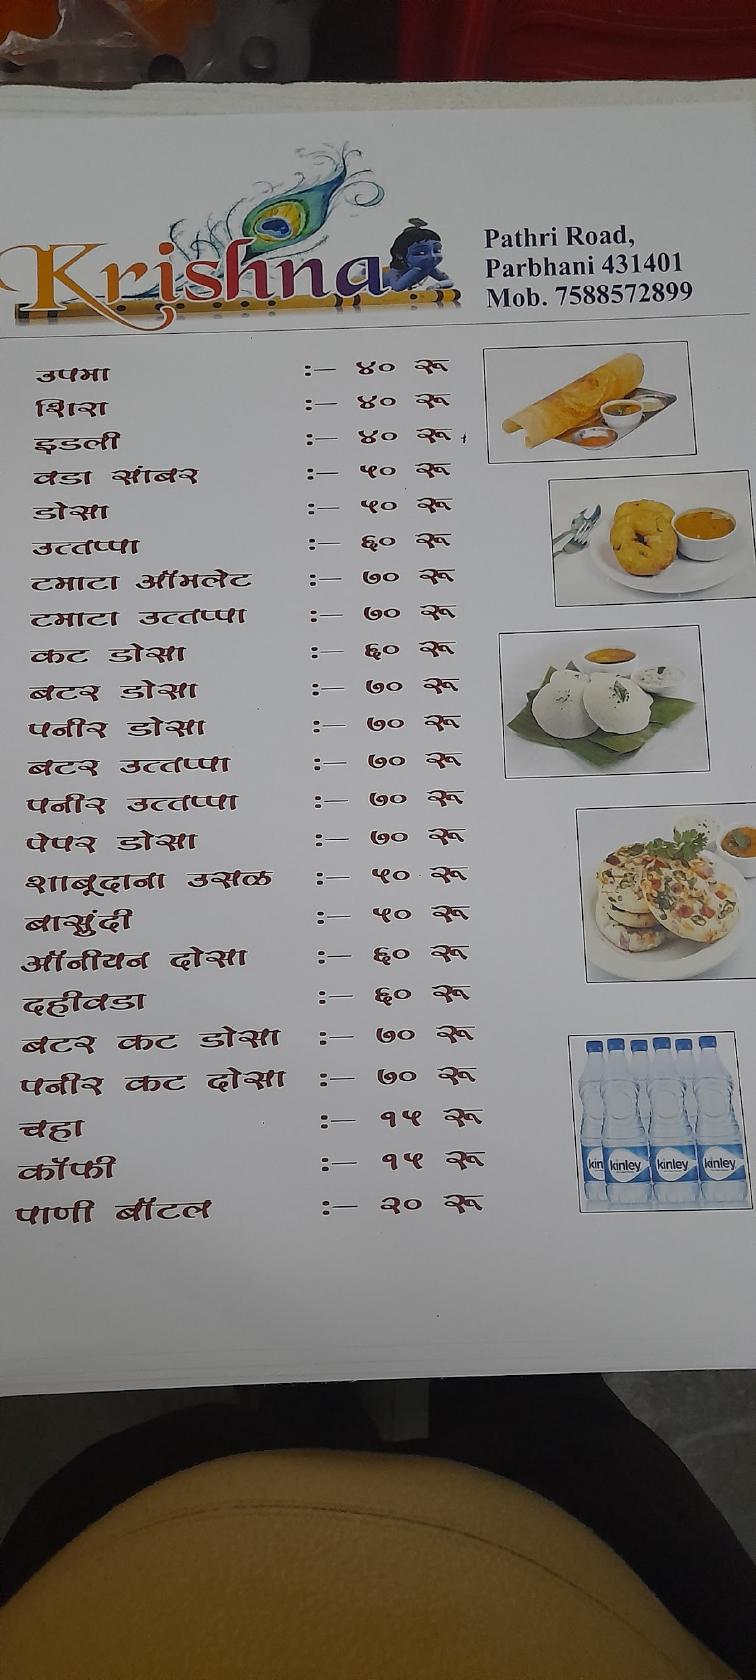 Krishna
Pathri Road,
Parbhani 431401
Mob. 7588572899
उपमा :– ४० रू
शिरा :– ४० रू
इडली :– ४० रू
वडा सांबर :– ५० रू
डोसा :– ५० रू
उत्तप्पा :– ६० रू
टमाटा ऑमलेट :– ७० रू
टमाटा उत्तप्पा :– ७० रू
कट डोसा :– ६० रू
बटर डोसा :– ७० रू
पनीर डोसा :– ७० रू
बटर उत्तप्पा :– ७० रू
पनीर उत्तप्पा :– ७० रू
पेपर डोसा :– ७० रू
शाबूदाना उसळ :– ५० रू
बासुंदी :– ५० रू
ऑनीयन दोसा :– ६० रू
दहीवडा :– ६० रू
बटर कट डोसा :– ७० रू
पनीर कट दोसा :– ७० रू
चहा :– १५ रू
कॉफी :– १५ रू
पाणी बॉटल :– २० रू
kin kinley kinley kinley